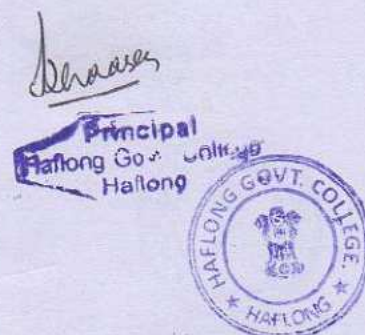 Principal
Haflong Gov College
Haflong
HAFLONG GOVT. COLLEGE.
★ HAFLONG ★